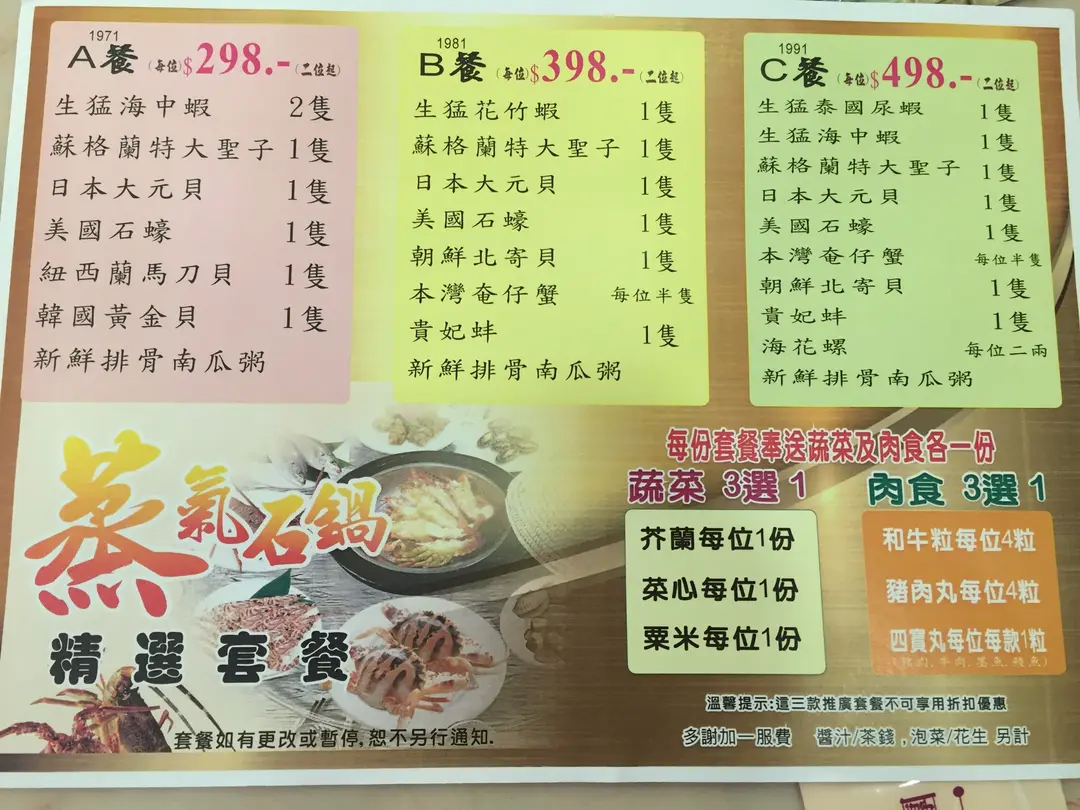 1971
A餐(每位)$298.-(二位起)
生猛海中蝦 2隻
蘇格蘭特大聖子 1隻
日本大元貝 1隻
美國石蠔 1隻
紐西蘭馬刀貝 1隻
韓國黃金貝 1隻
新鮮排骨南瓜粥
1981
B餐(每位)$398.-(二位起)
生猛花竹蝦 1隻
蘇格蘭特大聖子 1隻
日本大元貝 1隻
美國石蠔 1隻
朝鮮北寄貝 1隻
本灣奄仔蟹 每位半隻
貴妃蚌 1隻
新鮮排骨南瓜粥
1991
C餐(每位)$498.-(二位起)
生猛泰國尿蝦 1隻
生猛海中蝦 1隻
蘇格蘭特大聖子 1隻
日本大元貝 1隻
美國石蠔 1隻
本灣奄仔蟹 每位半隻
朝鮮北寄貝 1隻
貴妃蚌 1隻
海花螺 每位二兩
新鮮排骨南瓜粥
蒸氣石鍋
精選套餐
套餐如有更改或暫停,恕不另行通知.
每份套餐奉送蔬菜及肉食各一份
蔬菜 3選1
芥蘭每位1份
菜心每位1份
粟米每位1份
肉食 3選1
和牛粒每位4粒
豬肉丸每位4粒
四寶丸每位每款1粒
(豬肉,牛肉,墨魚,鯪魚)
溫馨提示:這三款推廣套餐不可享用折扣優惠
多謝加一服費 醬汁/茶錢,泡菜/花生 另計